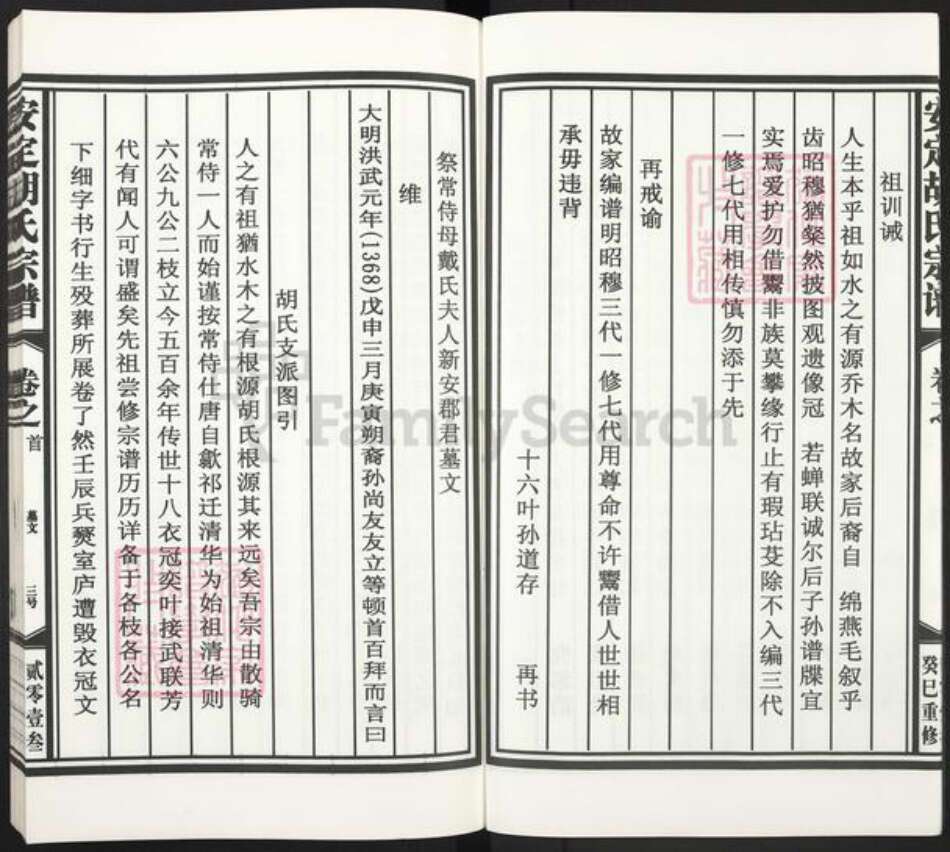 祖训诫
人生本乎祖如水之有源乔木名故家后裔自　绵燕毛叙乎
齿昭穆猶粲然披图观遗像冠　若蝉联诚尔后子孙谱牒宜
实焉爱护勿借鬻非族莫攀缘行止有瑕玷芟除不入编三代
一修七代用相传慎勿添于先
再戒谕
故家编谱明昭穆三代一修七代用尊命不许鬻借人世世相
承毋违背
十六叶孙道存　再书
安定胡氏宗谱
癸巳重修
祭常侍母戴氏夫人新安郡君墓文
维
大明洪武元年(1368)戊申三月庚寅朔裔孙尚友友立等顿首百拜而言曰
胡氏支派图引
人之有祖猶水木之有根源胡氏根源其来远矣吾宗由散骑
常侍一人而始谨按常侍仕唐自歙祁迁清华为始祖清华则
六公九公二枝立今五百余年传世十八衣冠奕叶接武联芳
代有闻人可谓盛矣先祖尝修宗谱历历详备于各枝各公名
下细字书行生殁葬所展卷了然壬辰兵燹室庐遭毁衣冠文
安定胡氏宗谱
卷之首
墓文
三号
贰零壹叁
FamilySearch